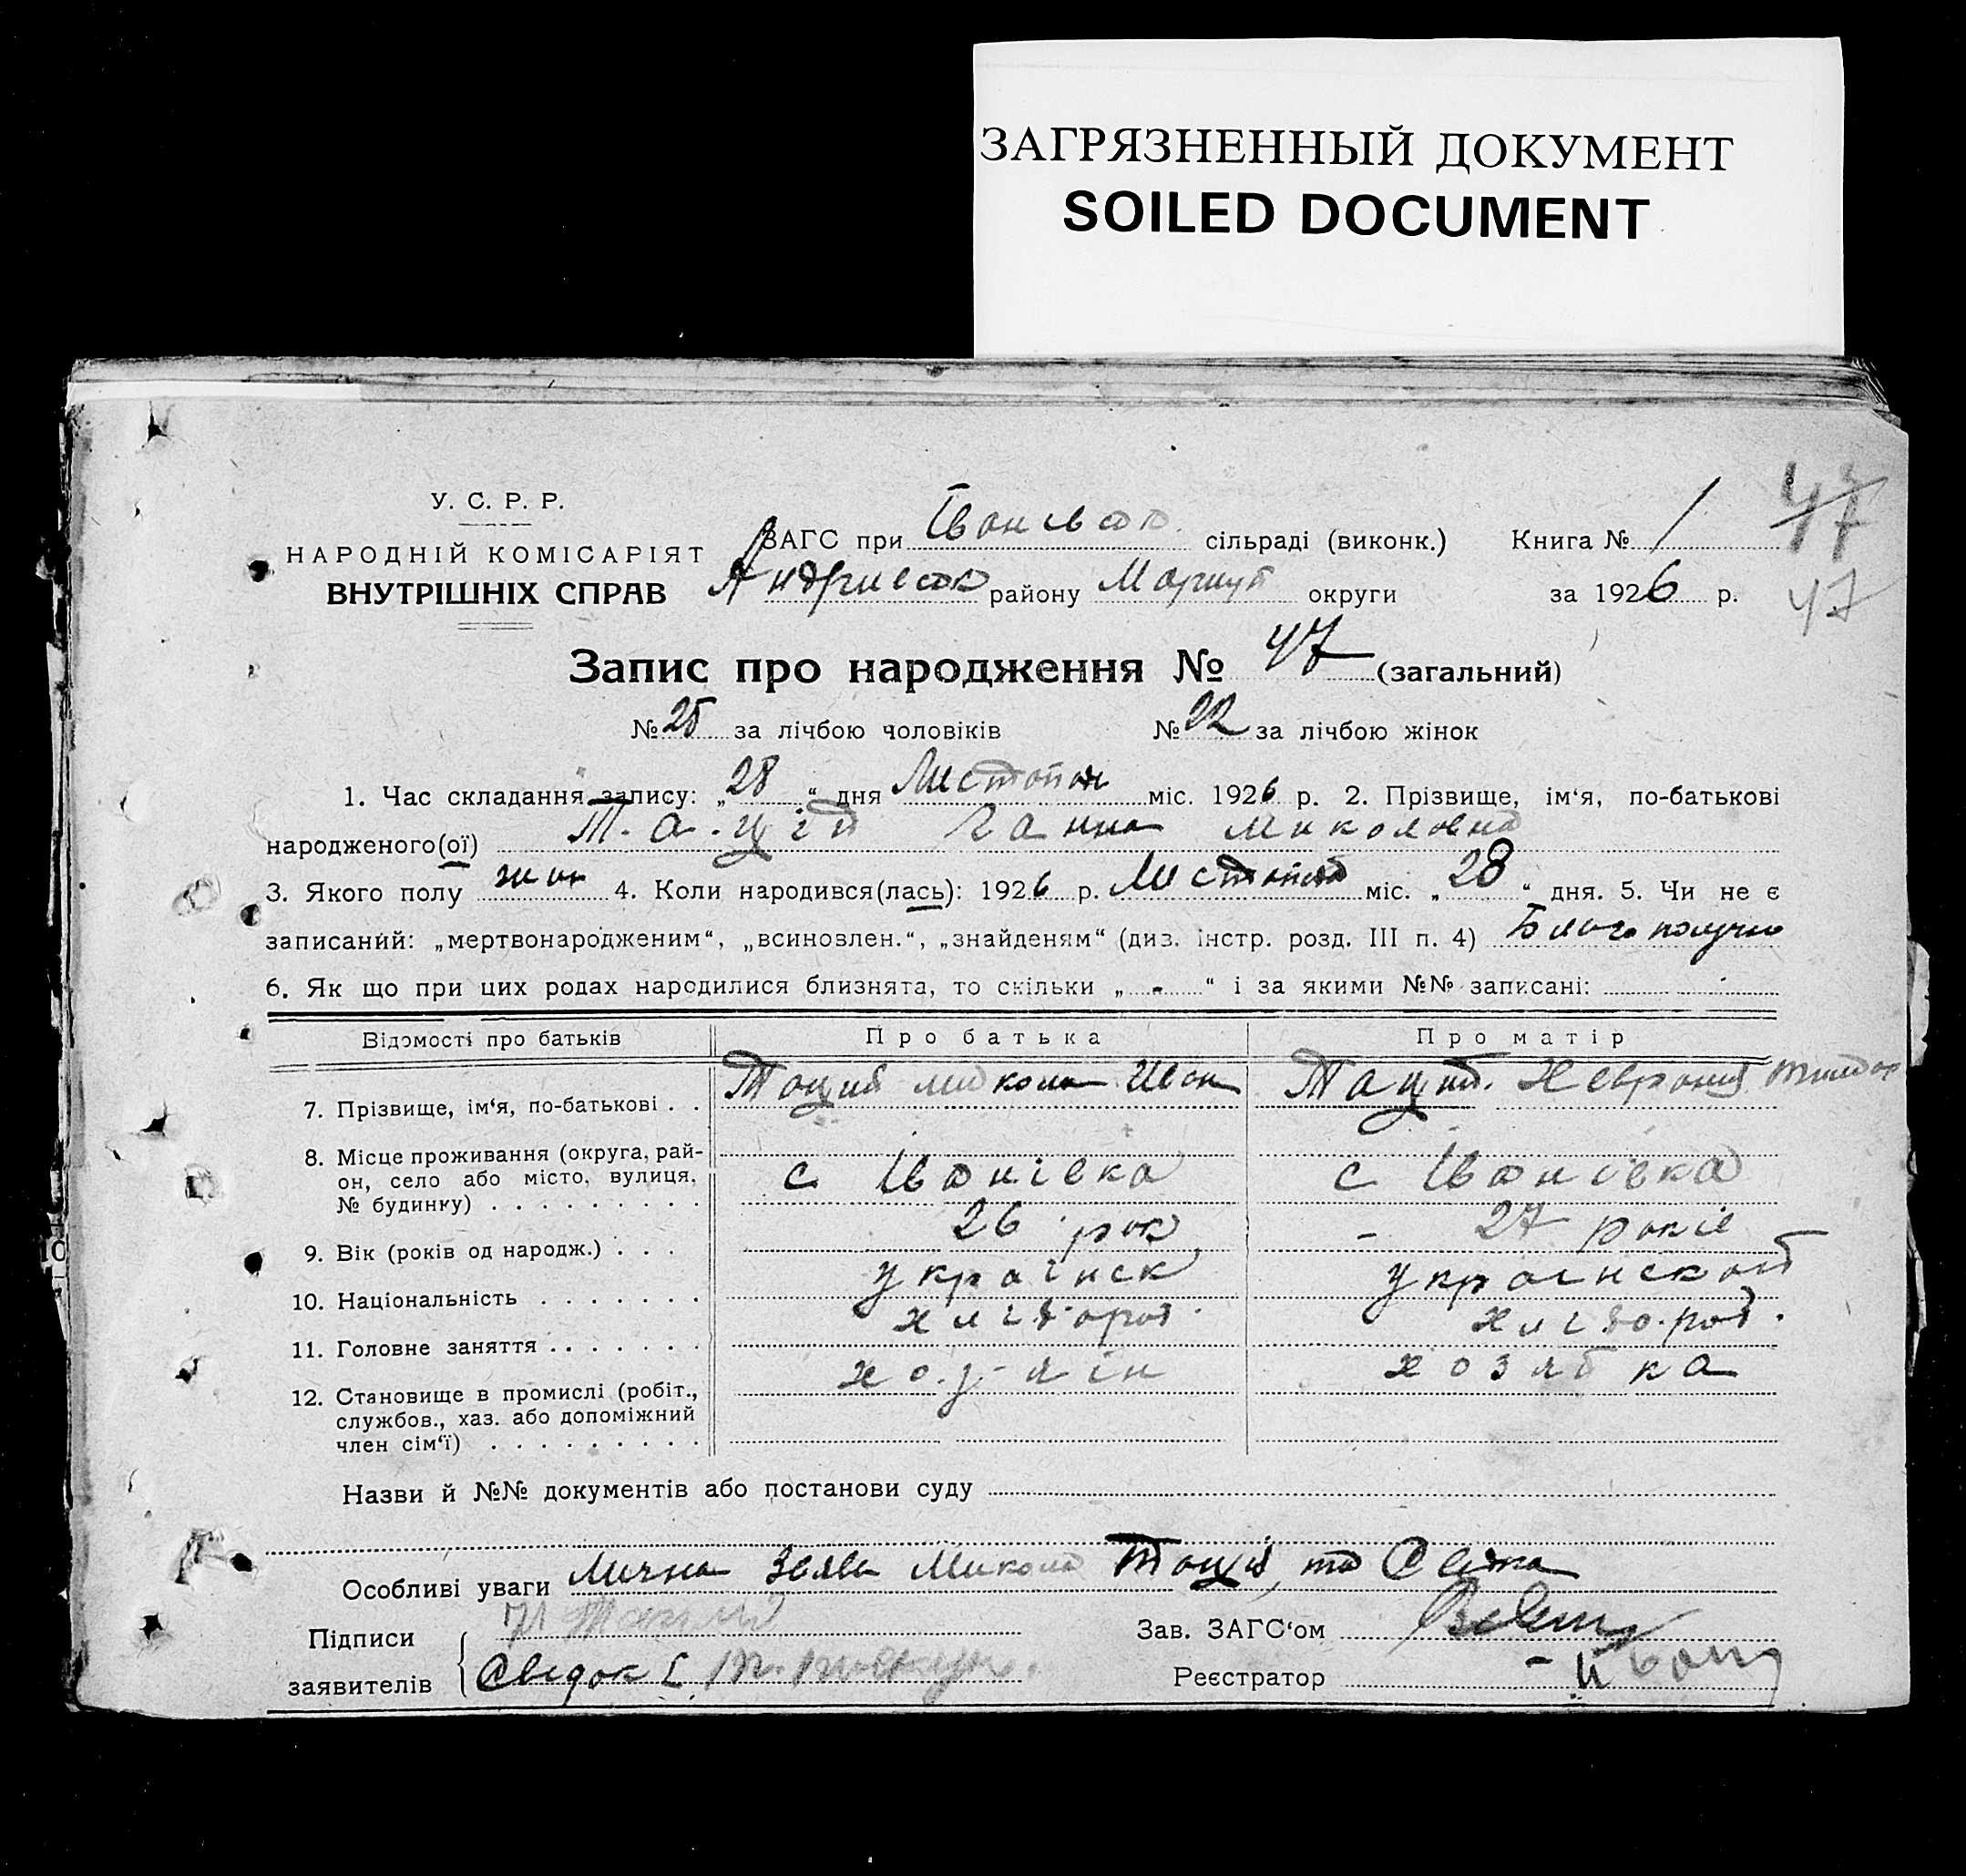 ЗАГРЯЗНЕННЫЙ ДОКУМЕНТ
SOILED DOCUMENT
У. С. Р. Р.
НАРОДНІЙ КОМІСАРІЯТ
ВНУТРІШНІХ СПРАВ
ЗАГС при сільраді (виконк.) Книга № 1 47
району Мариуп округи за 1926 р. 47
Запис про народження № 47 (загальний)
№ 25 за лічбою чоловіків № 22 за лічбою жінок
1. Час складання запису: „28“ дня Листопад міс. 1926 р. 2. Прізвище, ім‘я, по-батькові
народженого(ої) Ганна Миколовна
3. Якого полу жин 4. Коли народився(лась): 1926 р. Листопад міс. „28“ дня. 5. Чи не є
записаний: „мертвонародженим“, „всиновлен.“, „знайденям“ (див. інстр. розд. III п. 4) Благополучно
6. Як що при цих родах народилися близнята, то скільки „ - “ і за якими №№ записані:
Відомості про батьків Про батька Про матір
7. Прізвище, ім‘я, по-батькові . . Таций Микола Иван Тацій.
8. Місце проживання (округа, рай-
он, село або місто, вулиця, с Іванівка с Іванівка
№ будинку) . . . . . . . . .
9. Вік (років од народж.) . . . 26 рок - 27 років
10. Національність . . . . . . . українск українскої
11. Головне заняття . . . . . . . хлібороб. хлібо.роб.
12. Становище в промислі (робіт., хо.з-яін хозяйка
службов., хаз. або допоміжний
член сім‘ї) . . . . . . . . .
Назви й №№ документів або постанови суду
Особливі уваги Лична Зьява Микола Тація, та Свідка
Підписи Зав. ЗАГС‘ом
заявителів Свідок Реєстратор